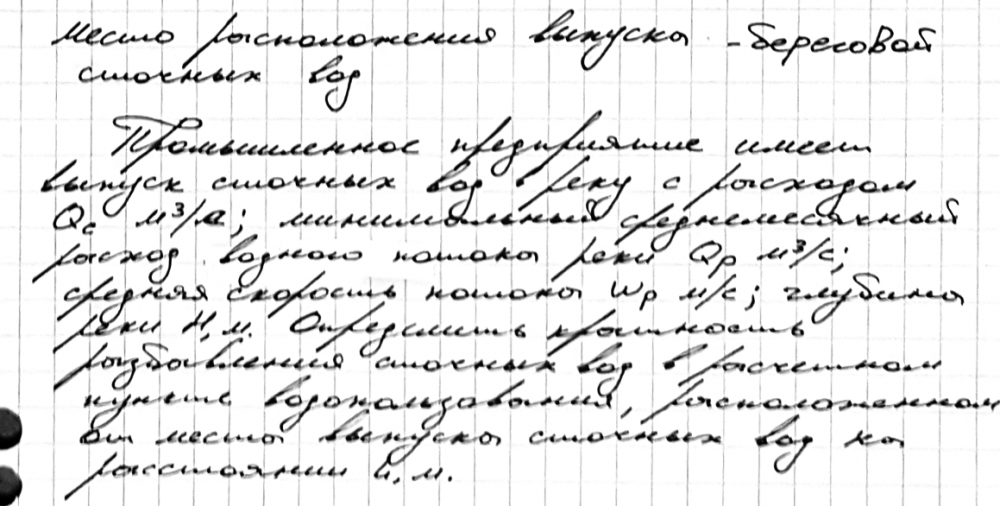 место расположения выпуска - береговой
сточных вод
Промышленное предприятие имеет
выпуск сточных вод в реку с расходом
Qc м³/с; минимальный среднемесячный
расход водного потока реки Qр м³/с;
средняя скорость потока Wр м/с; глубина
реки H, м. Определить кратность
разбавления сточных вод в расчетном
пункте водопользования, расположенном
от места выпуска сточных вод на
расстоянии L, м.